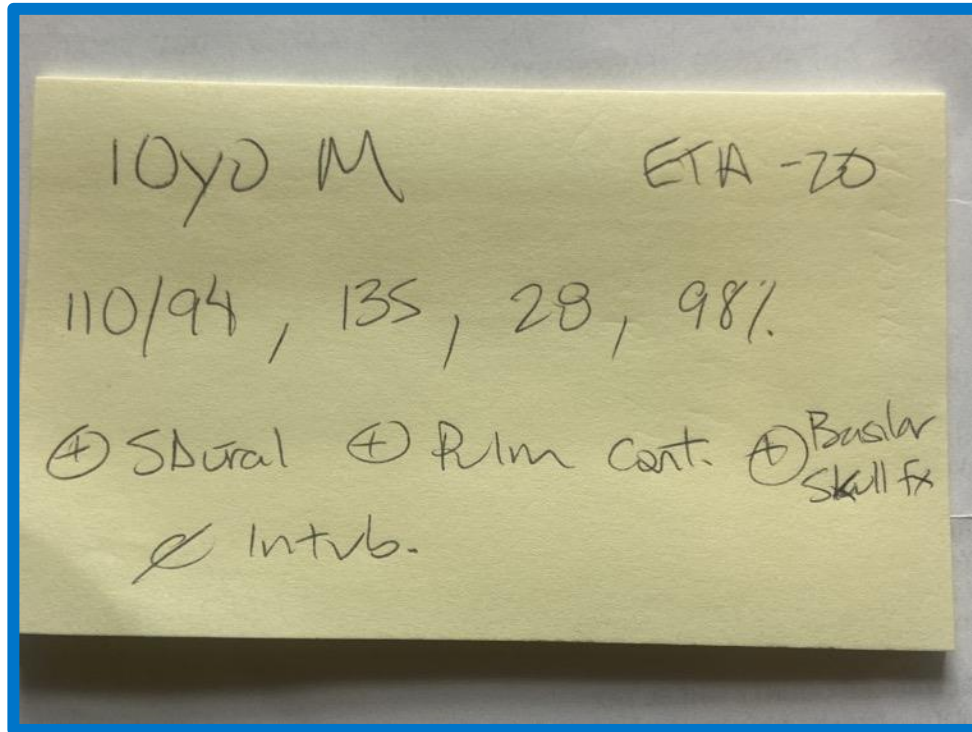 10yo M ETA -20
110/94, 135, 28, 98%
⊕ SDural ⊕ Pulm Cont. ⊕ Basilar
Skull fx
∅ Intub.